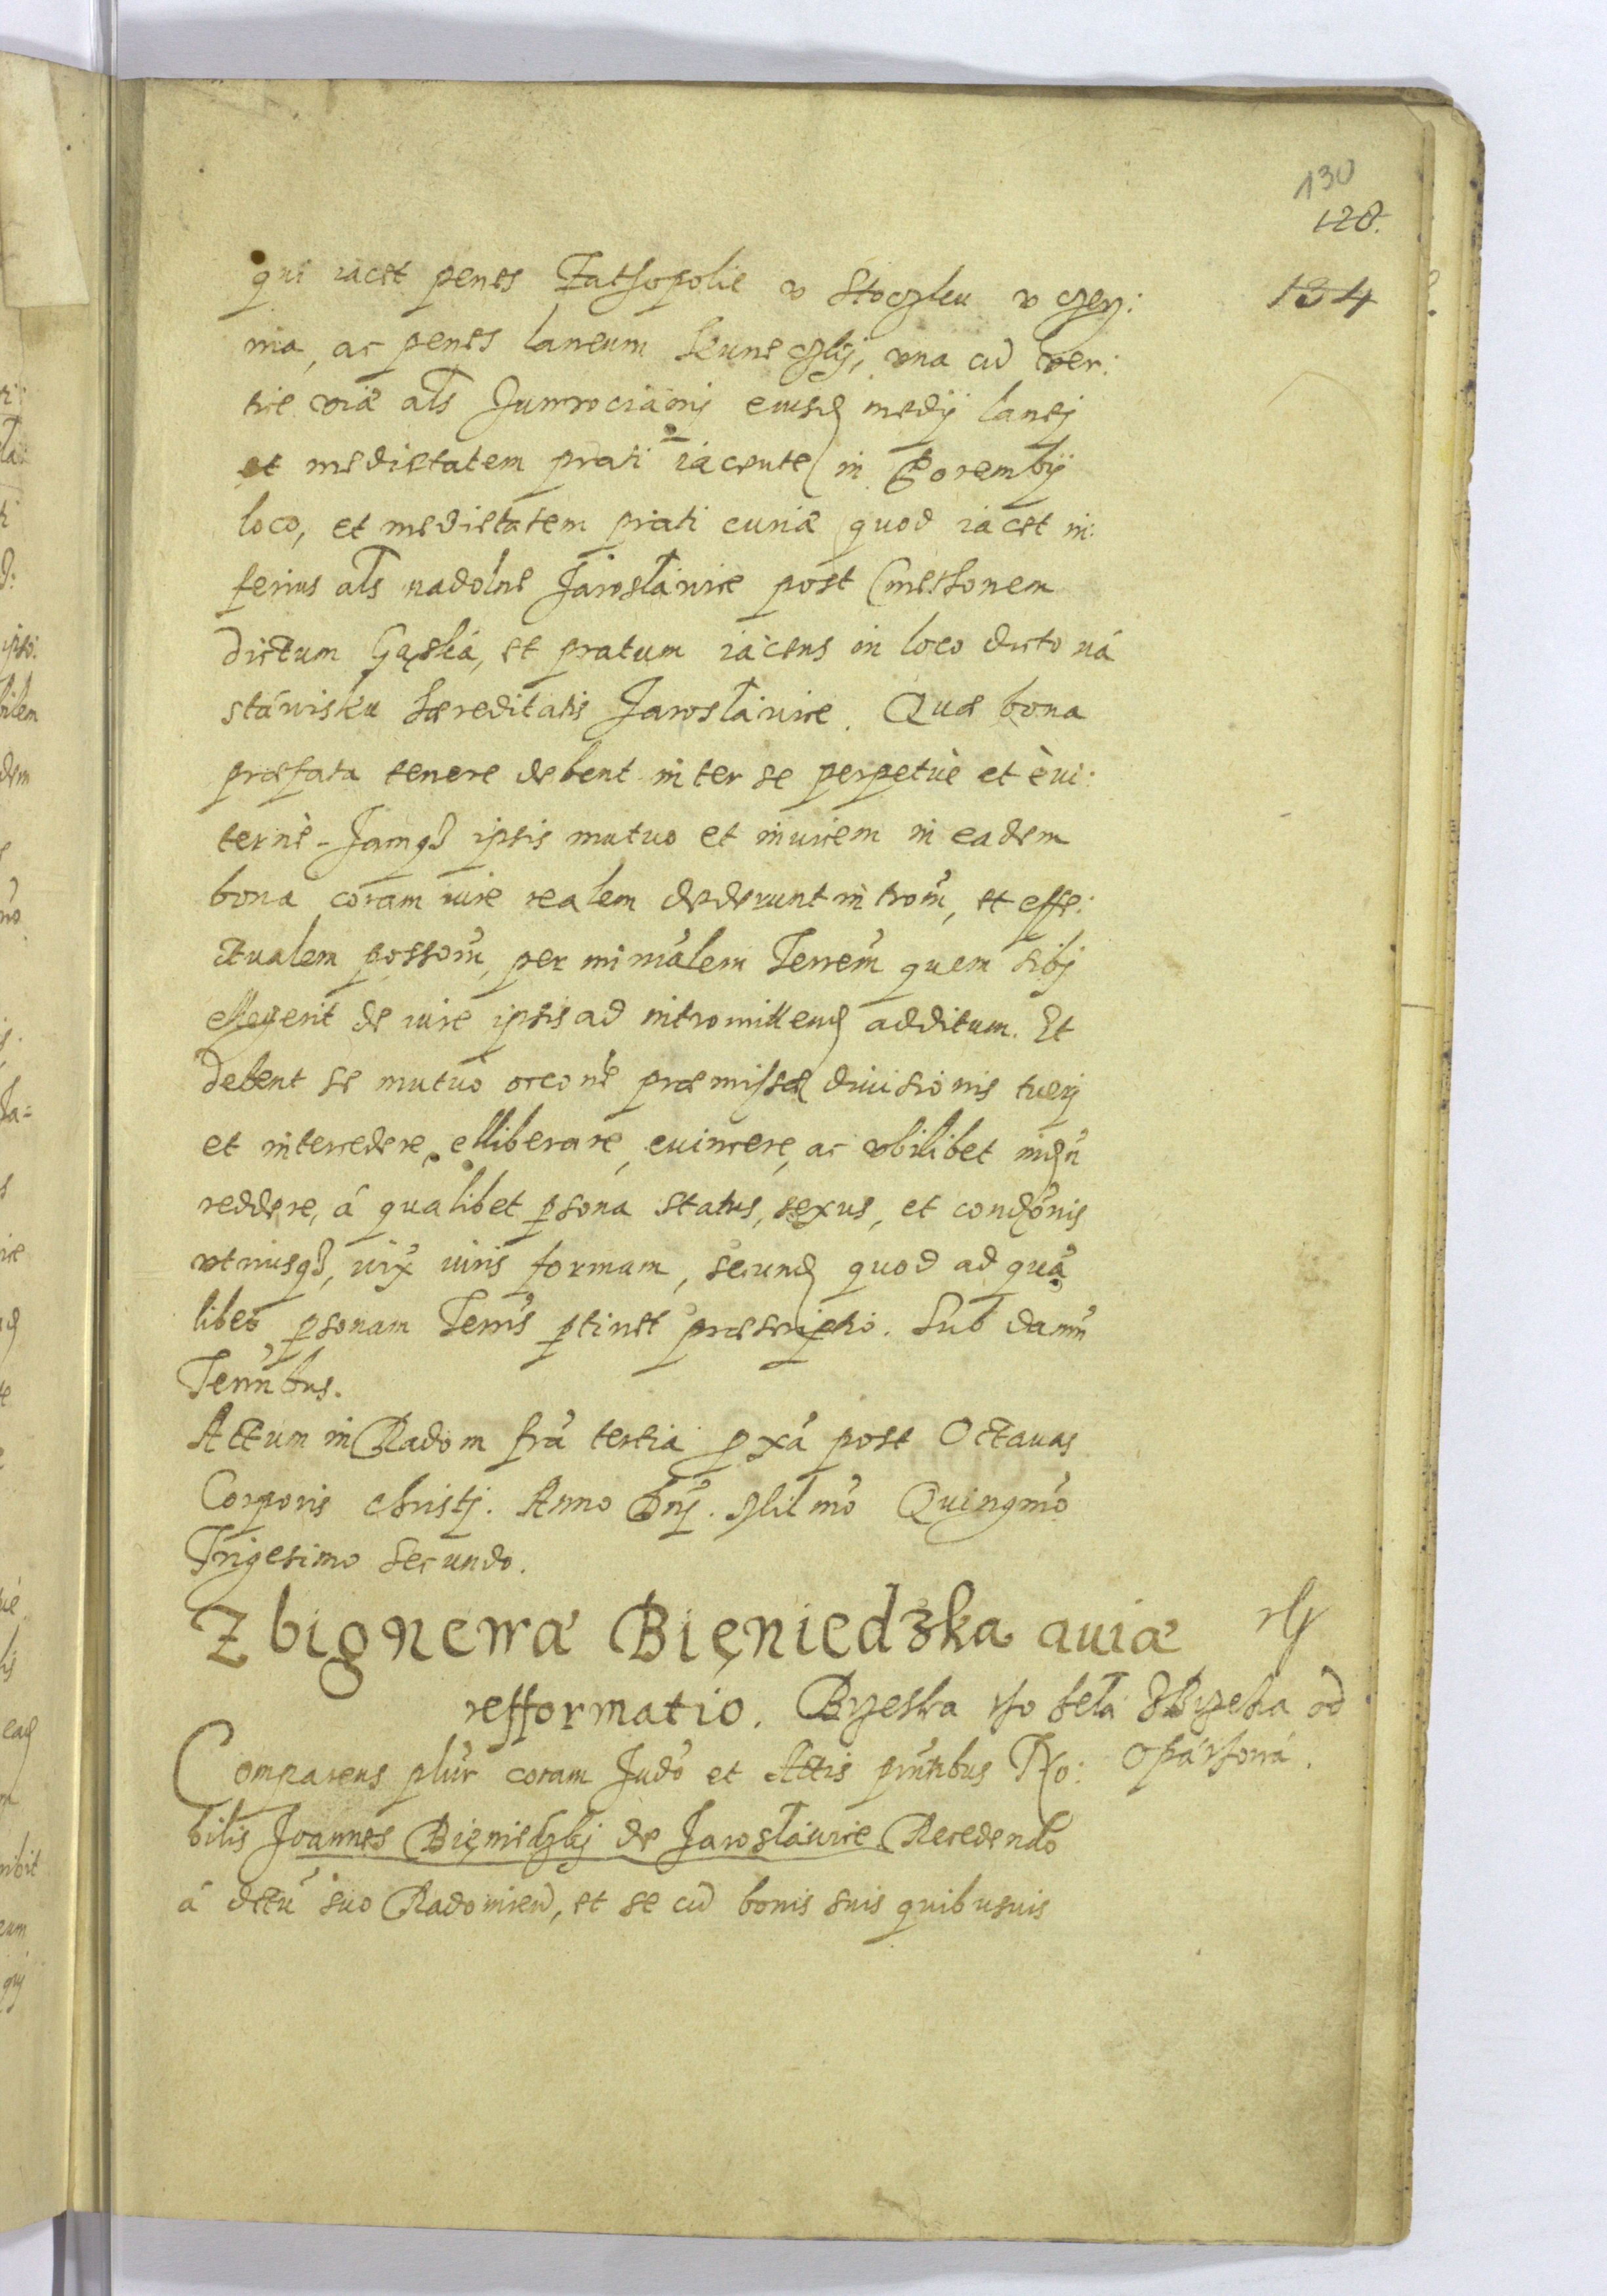 130
128.
134
qui iacet penes Zathopolie v Stoczku v czer:
nia, ac penes laneum seuneczkij, vna cũ ver:
tice viæ als Junwrociamj eiusd medij lanej
et medietatem prati iacente in Porembij
loco, et medietatem prati curiæ quod iacet in:
ferius als nadolne Jarosławice post Cmethonem
dictum Gąská, et pratum iacens in loco dicto ná
stáwisku hæreditatis Jarosłáwice. Quæ bona
præfata tenere debent inter se perpetuè et èui:
ternè. Jamqз ipsis mutuo et inuicem in eadem
bona coram iure realem dederunt intrõm, et effe:
ctualem possõm, per minrálem Terrẽm quem sibj
ellegerit de iure ipsis ad intromittend additum. Et
debent se mutuo orẽone præmissæ diuisionis tuerj
et intercedere, elliberare, euincere, ac vbilibet indẽn
reddere, á qualibet psona status, sexus, et condõnis
vtriusqз, iux iuris formam, secund quod ad quã
libet psonam Terrĩs ptinet præscriptio. Sub damñ
Terrñbus.
Actum in Radom frã tertia pxã post Octauas
Corporis christj. Anno Dnj. Mlilmõ Quingmõ
Trigesimo Secundo.
Zbignewá Bięniedzka auiæ
refformatio. Brzeska
Comparens plũr coram Judõ et Actis prñtibus No:
bilis Joannes Bięniedzkj de Jarosłáwice Recedendo
á dctũ suo Radomien, et se cũ bonis suis quibusuis